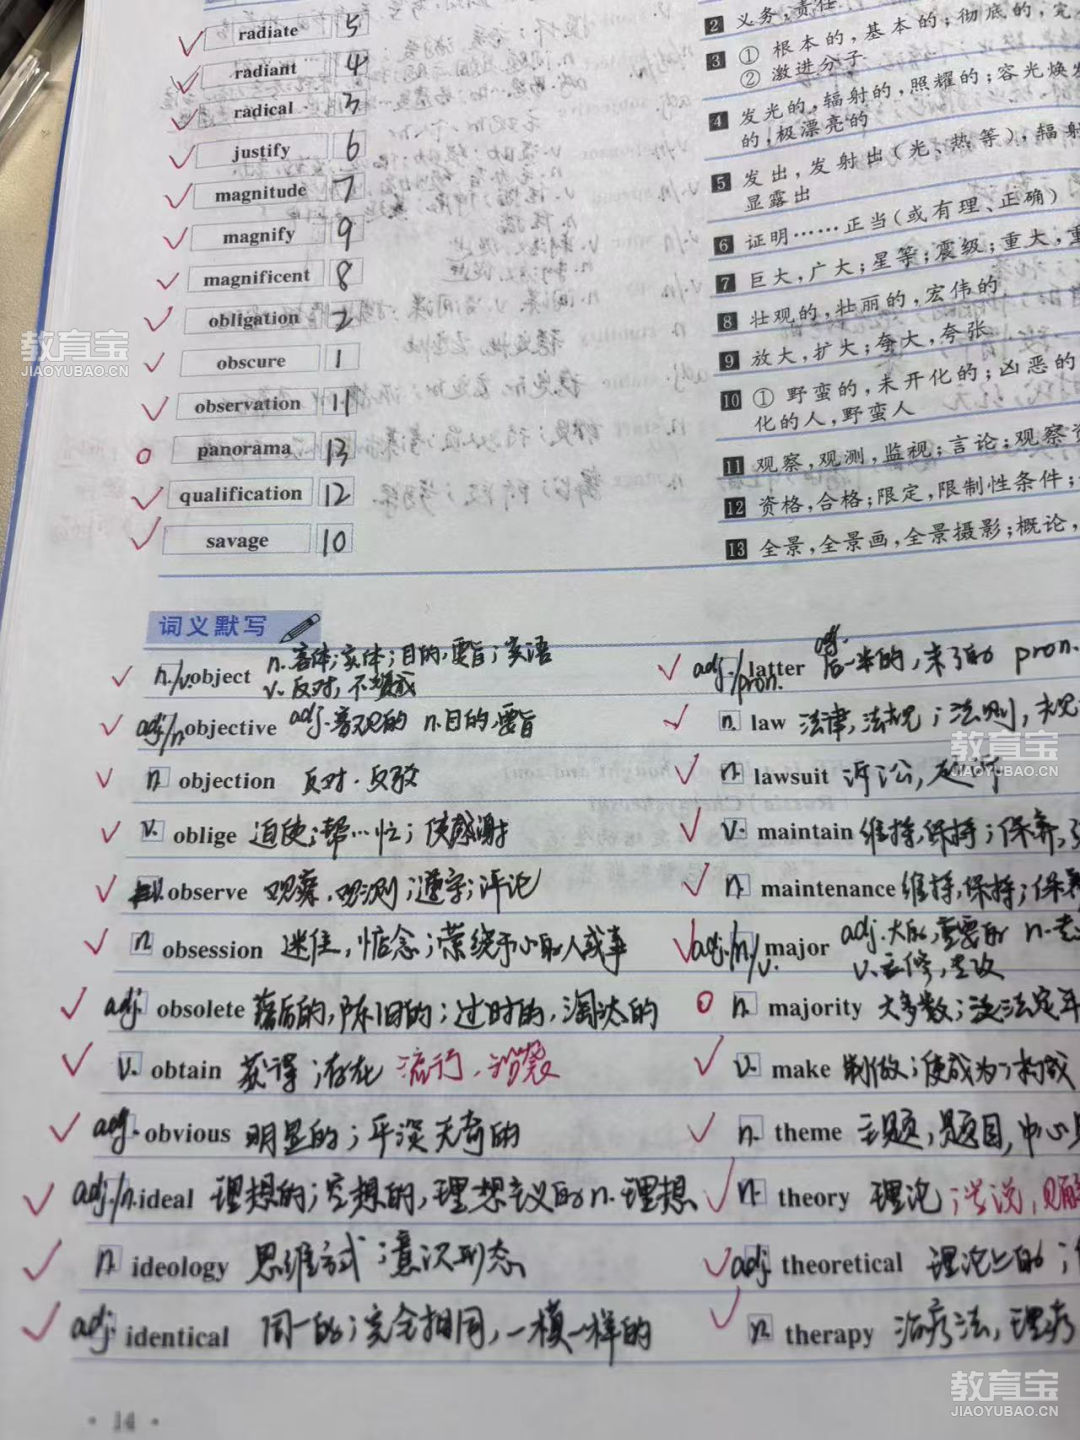 radiate 5
radiant 4
radical 3
justify 6
magnitude 7
magnify 9
magnificent 8
obligation 2
obscure 1
observation 11
panorama 13
qualification 12
savage 10
2 义务,责任
3 ① 根本的,基本的;彻底的,完
② 激进分子
4 发光的,辐射的,照耀的;容光焕发
的,极漂亮的
5 发出,发射出(光、热等),辐射
显露出
6 证明……正当(或有理、正确)
7 巨大,广大;星等;震级;重大,重
8 壮观的,壮丽的,宏伟的
9 放大,扩大;夸大,夸张
10 ① 野蛮的,未开化的;凶恶的
化的人,野蛮人
11 观察,观测,监视;言论;观察资
12 资格,合格;限定,限制性条件;
13 全景,全景画,全景摄影;概论,
词义默写
n./v. object n. 客体;实体;目的,要旨;宾语
v. 反对,不赞成
adj./n. objective adj. 客观的 n. 目的,要旨
n. objection 反对,反驳
v. oblige 迫使;帮…忙;使感谢
v. observe 观察,观测;遵守;评论
n. obsession 迷住,惦念;萦绕于心的人或事
adj. obsolete 落后的,陈旧的;过时的,淘汰的
v. obtain 获得;存在 流行,沿袭
adj. obvious 明显的;平淡无奇的
adj./n. ideal 理想的;空想的,理想主义的 n. 理想
n. ideology 思维方式;意识形态
adj. identical 同一的;完全相同,一模一样的
adj./pron. latter adj. 后一半的,末了的 pron.
n. law 法律,法规;法则,
n. lawsuit 诉讼,起诉
v. maintain 维持,保持;保养,
n. maintenance 维持,保持;保养
adj./n./v. major adj. 大的,重要的 n. 专
v. 主修,专攻
n. majority 大多数;法定年
v. make 制做;使成为;构成
n. theme 主题,题目,中心
n. theory 理论;学说,见解
adj. theoretical 理论上的;
n. therapy 治疗法,理疗
· 14 ·
教育宝
JIAOYUBAO.CN
教育宝
JIAOYUBAO.CN
教育宝
JIAOYUBAO.CN